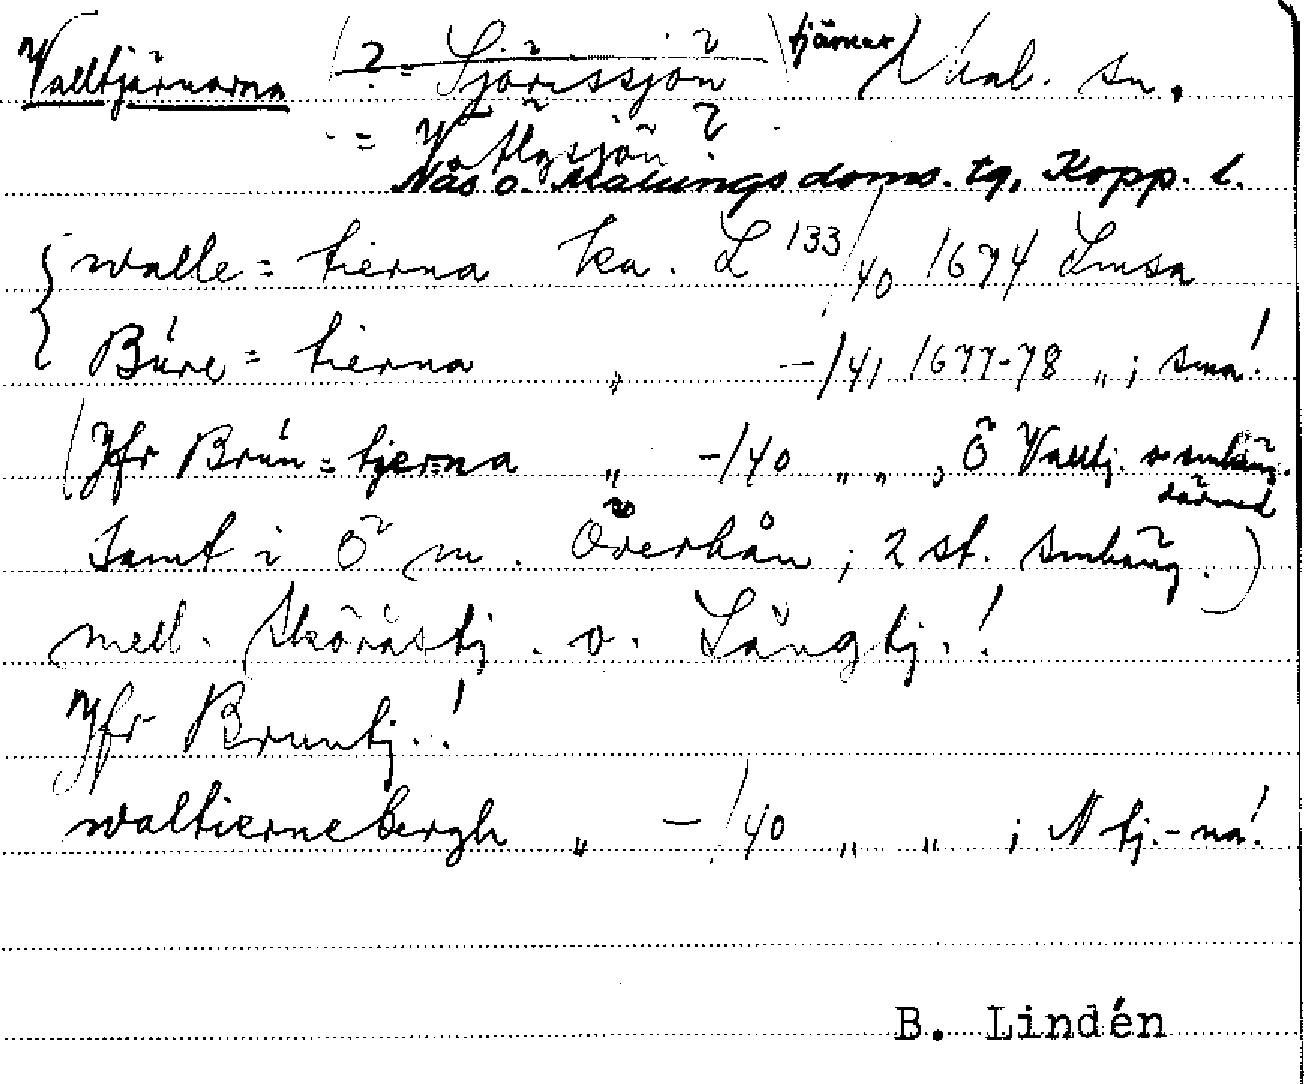 Valltjärnarna (? = Sjörissjön ?) tjärnar Naal. sn.
= Vallsjön ?
Nås o. Malungs doms. tg, Kopp. l.
walle = tierna ka. L 133/40 1674 Lmsa
Búre = tierna " -/41 1677-78 " ; sma!
(Jfr Brún = tjerna " -/40 " " , Ö Valltj. o smhäng. därmed
samt i Ö m. Överhån ; 2 st. smhäng.)
mell. Sköråstj. o. Långtj.!
Jfr Bruntj.!
waltiernebergh " -/40 " " ; N tj.-na!
B. Lindén